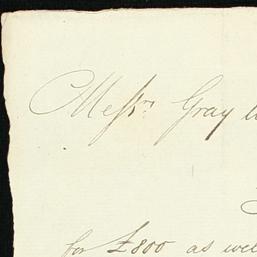 Messrs. Gray
for £800 as well